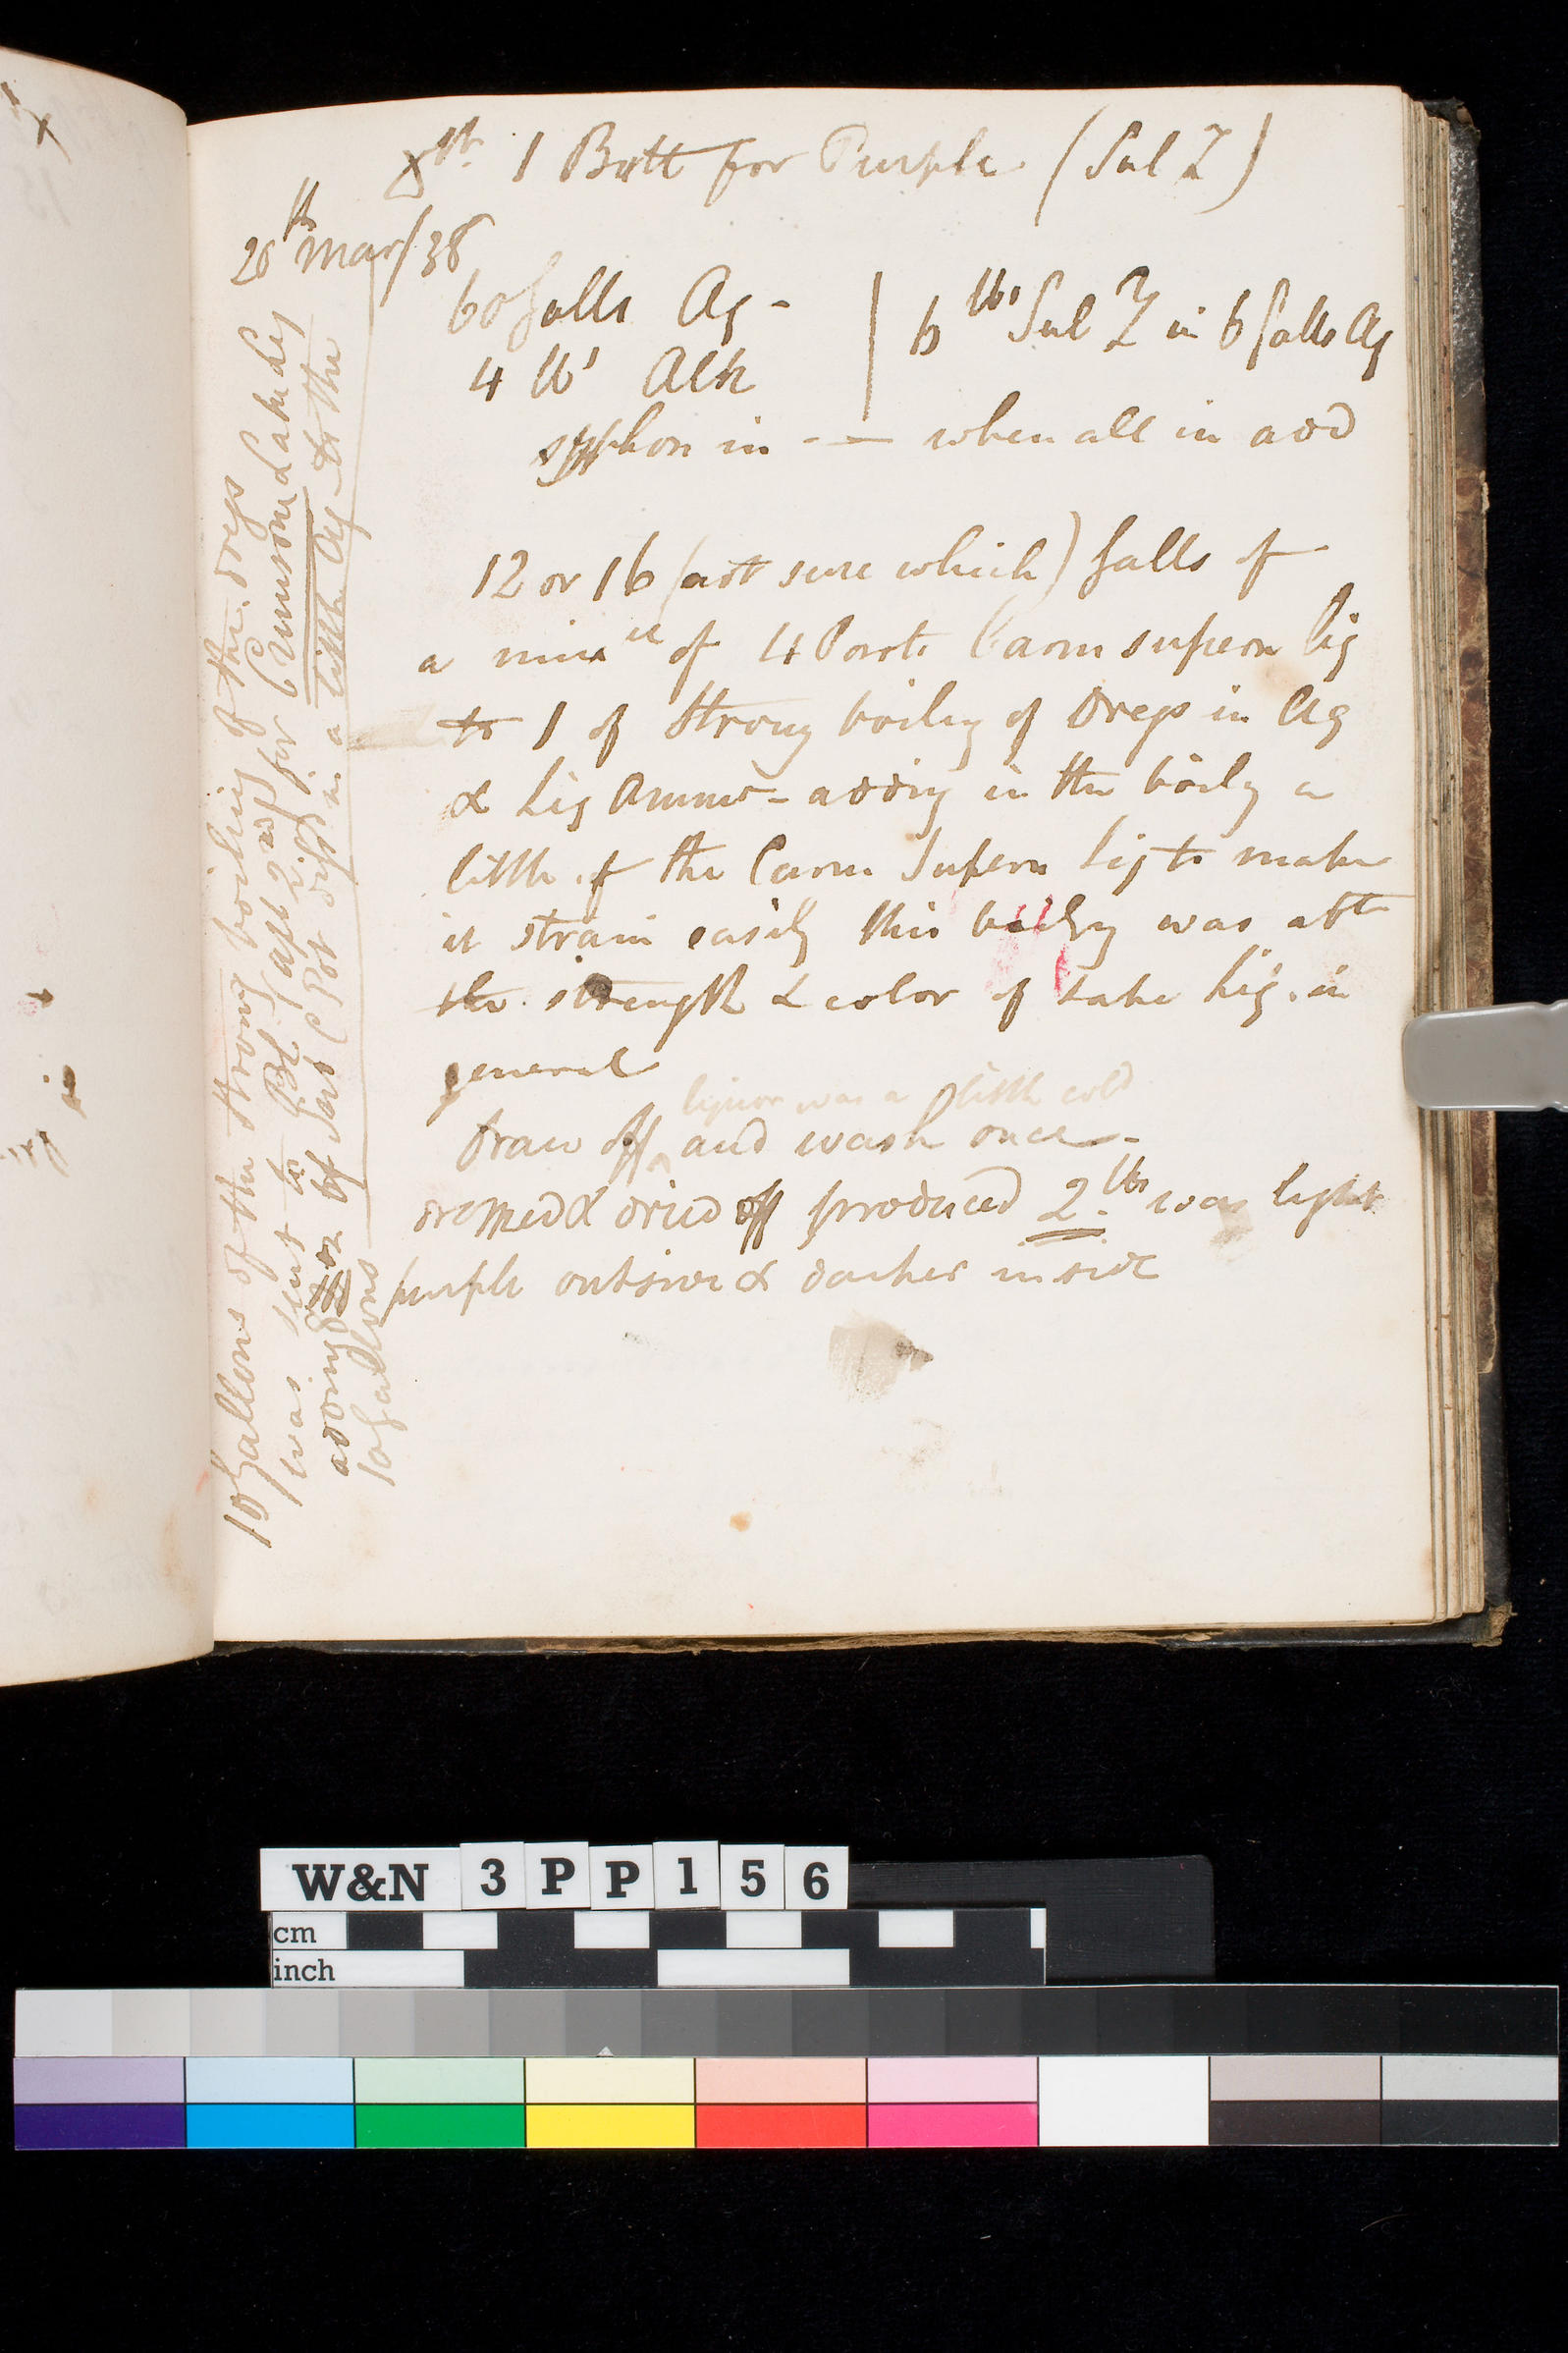 Xst. 1 Butt for Purple (Sul Z)
20th Mar/38
60 Galls Aq -
4 lbs Alk
6 lbs Sul Z in 6 Galls Aq
syphon in - — when all in add
12 or 16 (not sure which) Galls of
a mixre of 4 Parts Carm supern Liq
to 1 of Strong boiling of Dregs in Aq
& Liq Ammo - adding in the boilg a
little of the Carm Supern Liq to make
it strain easily this boilg was abt
the strength & color of Lake Liq. in
general
liquor was a little cold
Draw off and wash once -
dromed & dried off produced 2 lbs was light
purple outside & darker inside
10 Gallons of the strong boiling of the dregs
was sent to Bl. (apl 2nd) for Crimson Lake by
adding of Sub C Pot diss in a little Aq to the
10 Gallons
W&N 3PP156
cm
inch